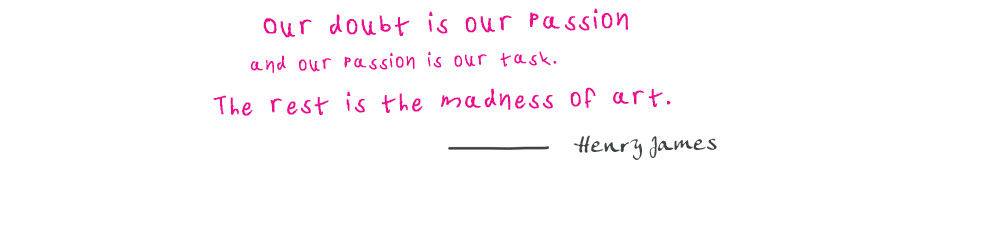 our doubt is our passion
and our passion is our task.
The rest is the madness of art.
Henry James